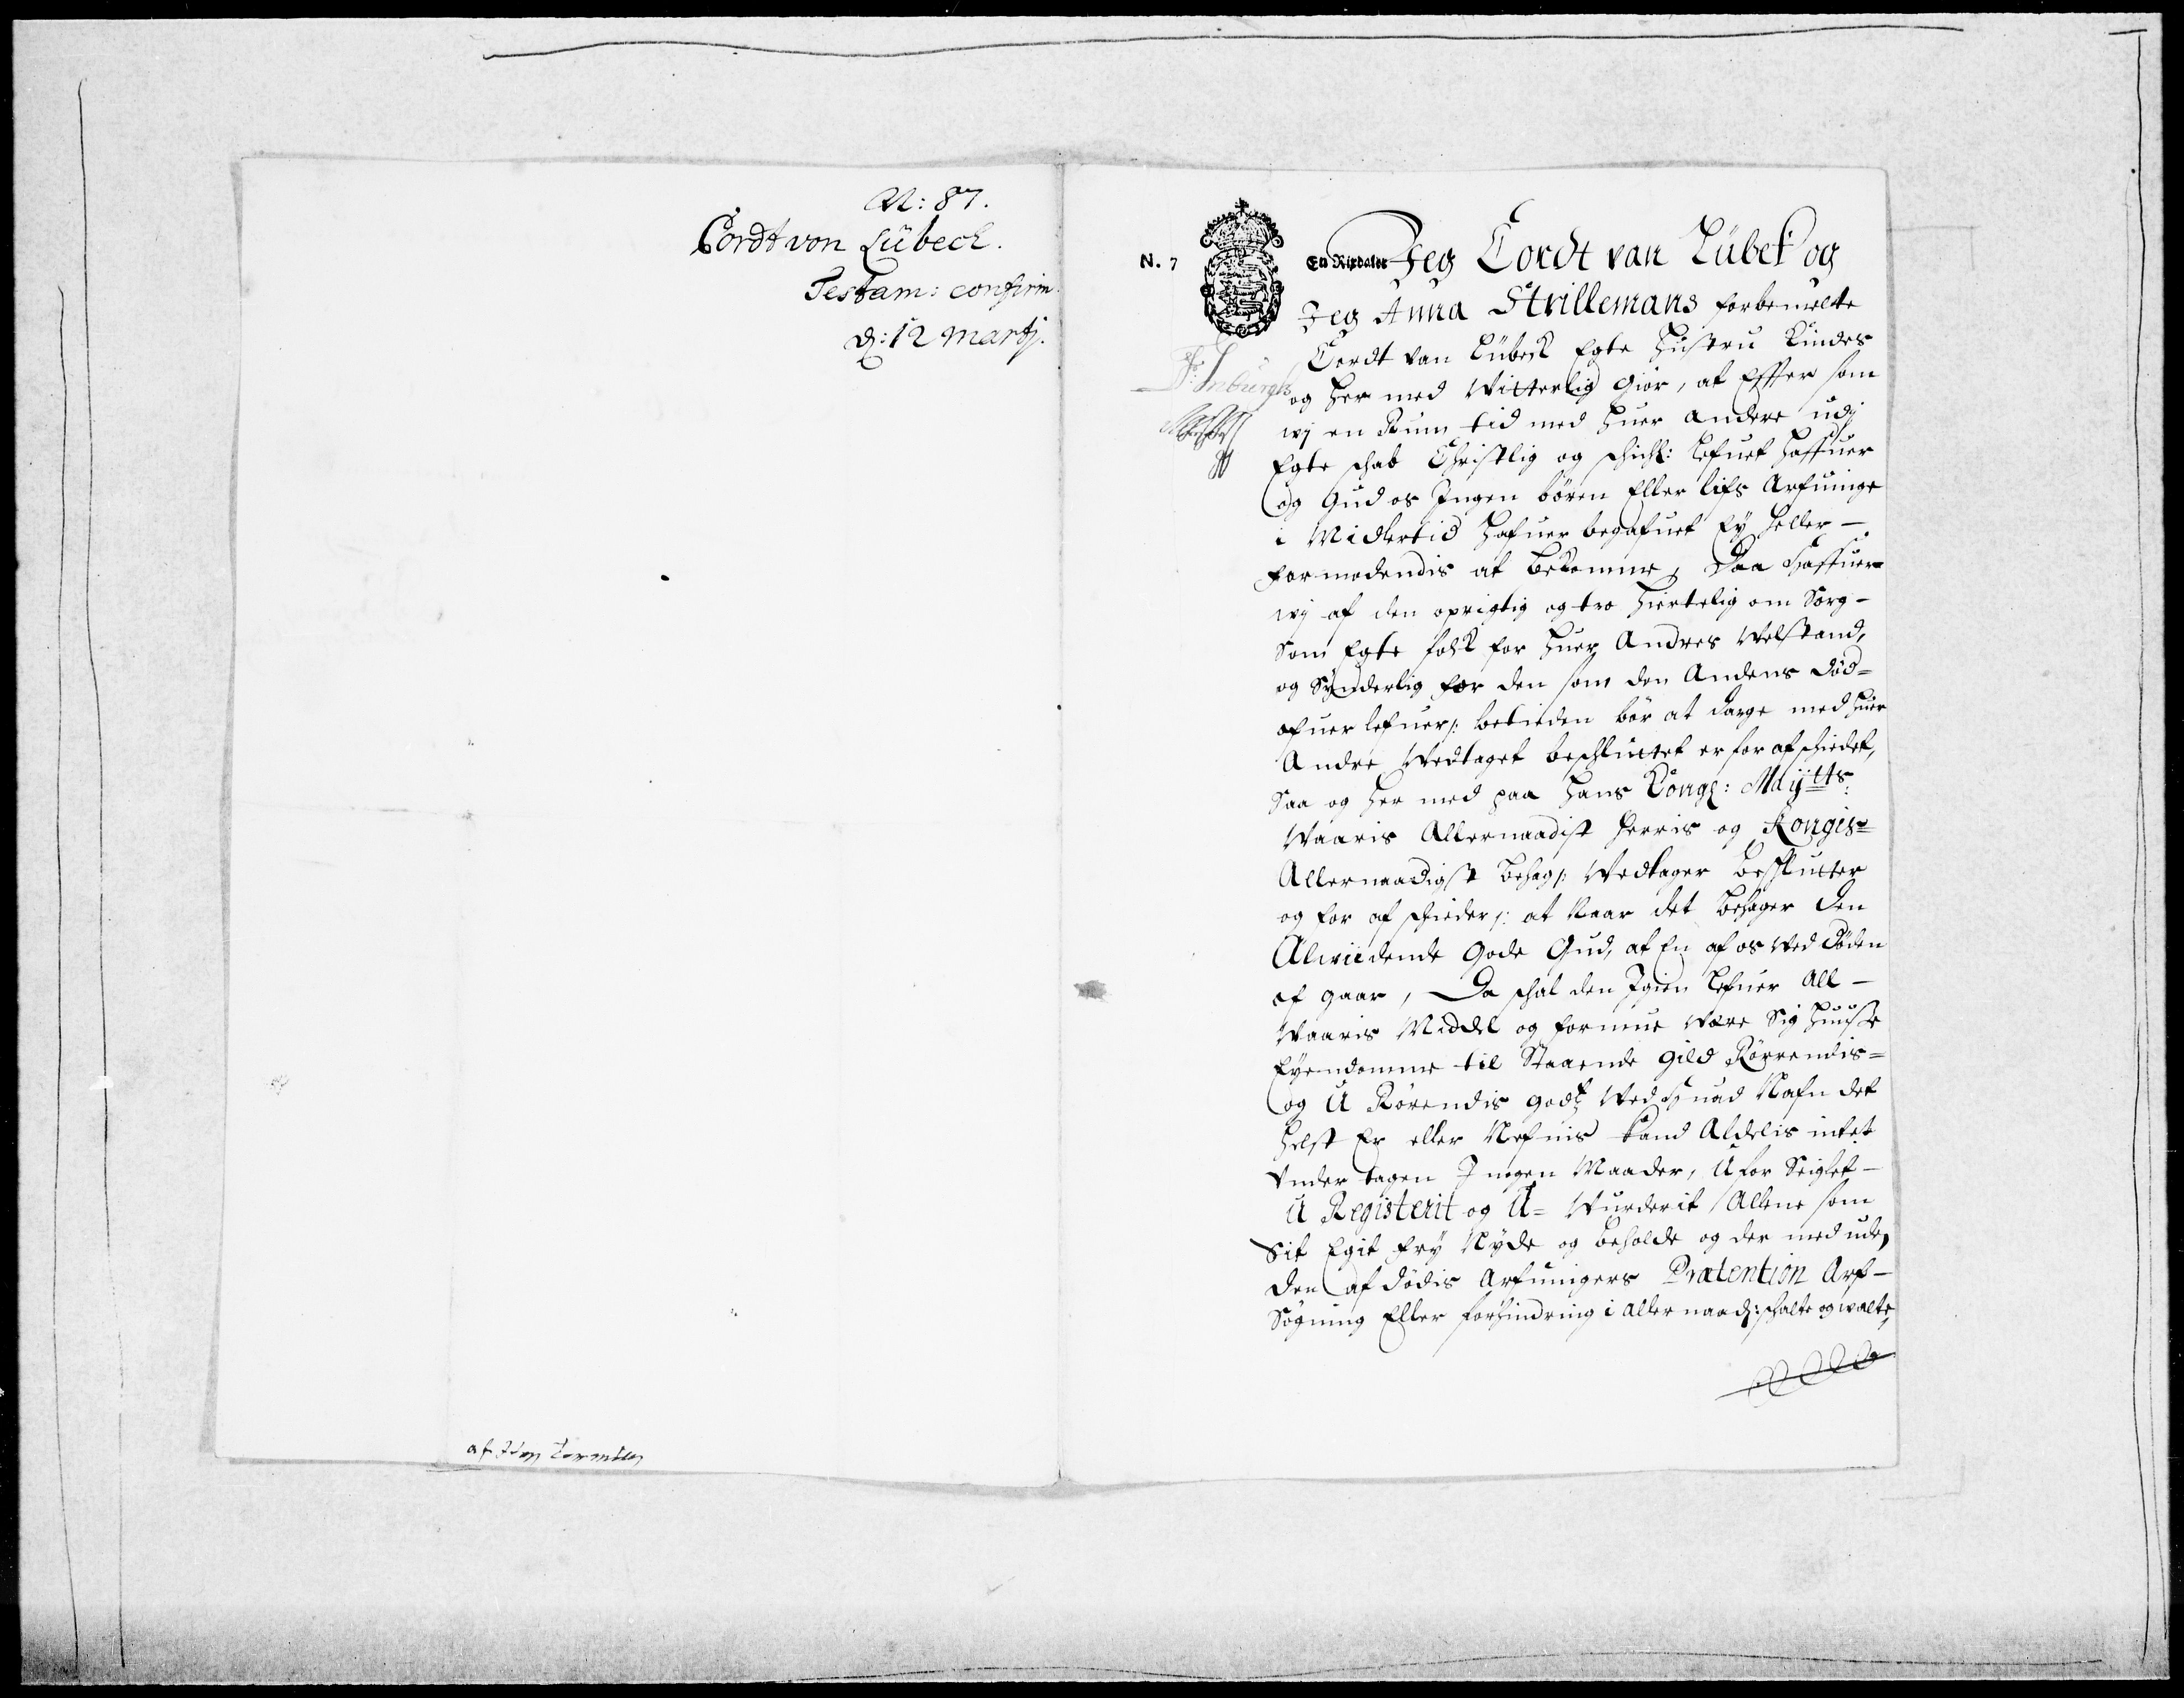 N: 87.
Cordt von Lübeck.
Testam: confirm.
d: 12 Martj.
N. 7
En Rixdaler
Jeg Cordt van Lübek og
Jeg Anna Strillemans forbemelte
Cordt van Lübeck Egte Hustru Kindes
og her med Vitterlig giör, at Efter som
wj en Rum tid med huer andere udj
Egte schab Christlig og schickl: lefuet haffuer
og Gud os Ingen bören Eller lifs Arfuinge
i Midlertid hafuer begafuet Ey heller
formodendis at bekomme, Daa haffuer
wj af den oprigtig og tro hiertelig om Sorg
Som Egte folk for huer Andres Velstand,
og Synderlig for den som den Andens Död
ofuer lefuer: betieden bör at drage med huer
Andre Vedtaget beschluttet er for afschiedet,
Saa og her med paa hans Kongl: Maÿtts
Vaaris Allernaadist herris og Kongis
Allernaadigst behag: Vedtager beslutter
og for af schieder: at Naar det behager den
Alwiidende gode Gud, at En af os ved Döden
af gaar, Da schal den Igien lefuer All
Vaaris Middel og formue være Sig huuse
Eyendomme til Staaende gield Rörrendis
og U Rörendis godtz ved huad Nafn det
helst Er eller Nefnis kand Aldelis intet
Vnder tagen I nogen Maader, U for Seiglet
U Registerit og U= Vurderit Allene som
Sit Eget fry Nyde og beholde og der med uden
den af dödis Arfuingers Prætention Arf
Sögning Eller forhindring i aller naad: schalte og walte
af